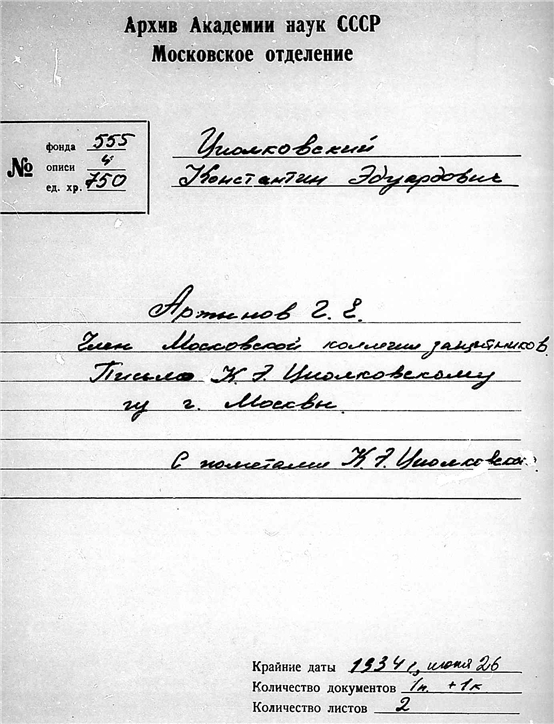 Архив Академии наук СССР
Московское отделение
№
фонда 555
описи 4
ед. хр. 750
Циолковский
Константин Эдуардович
Г. Е.
Член Московской коллегии защитников.
Письмо К. Э. Циолковскому
г. Москвы.
С пометами К. Э. Циолковског
Крайние даты 1934 г, июня 26
Количество документов 1п. +1к
Количество листов 2